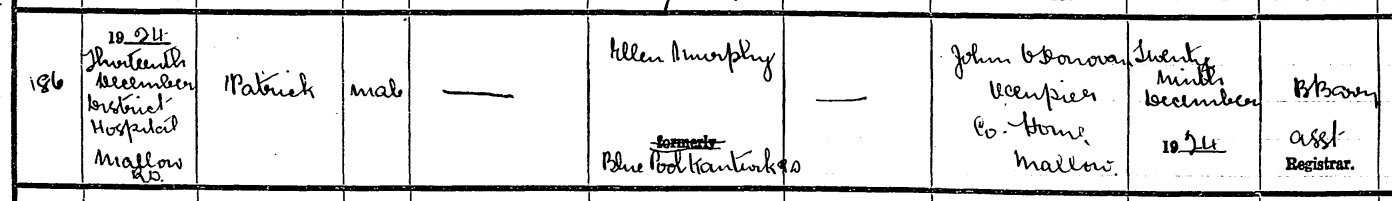 186
1924
Thirteenth
December
District
Hospital
Mallow
R.D.
Patrick
male
—
Ellen Murphy
formerly
Blue Pool Kanturk R.D
—
John O'Donovan
Occupier
Co. Home
Mallow.
Twenty
Ninth
December
1924
B Barry
asst
Registrar.